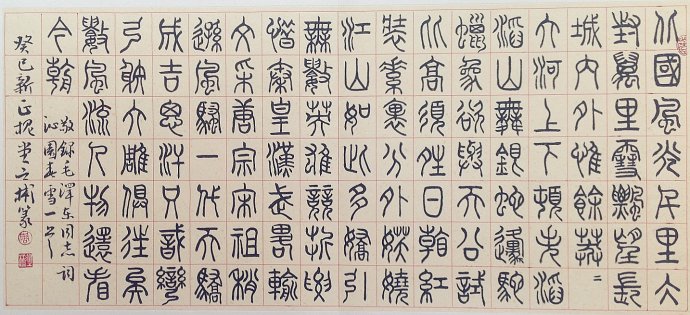 北國風光千里冰
封萬里雪飄望長
城內外惟餘莽〻
大河上下頓失滔
滔山舞銀蛇原馳
蠟象欲與天公試
比高須晴日看紅
裝素裹分外妖嬈
江山如此多嬌引
無數英雄競折腰
惜秦皇漢武略輸
文采唐宗宋祖稍
遜風騷一代天驕
成吉思汗只識彎
弓射大雕俱往矣
數風流人物還看
今朝
敬錄毛澤東同志詞
沁園春雪一首
癸巳新正